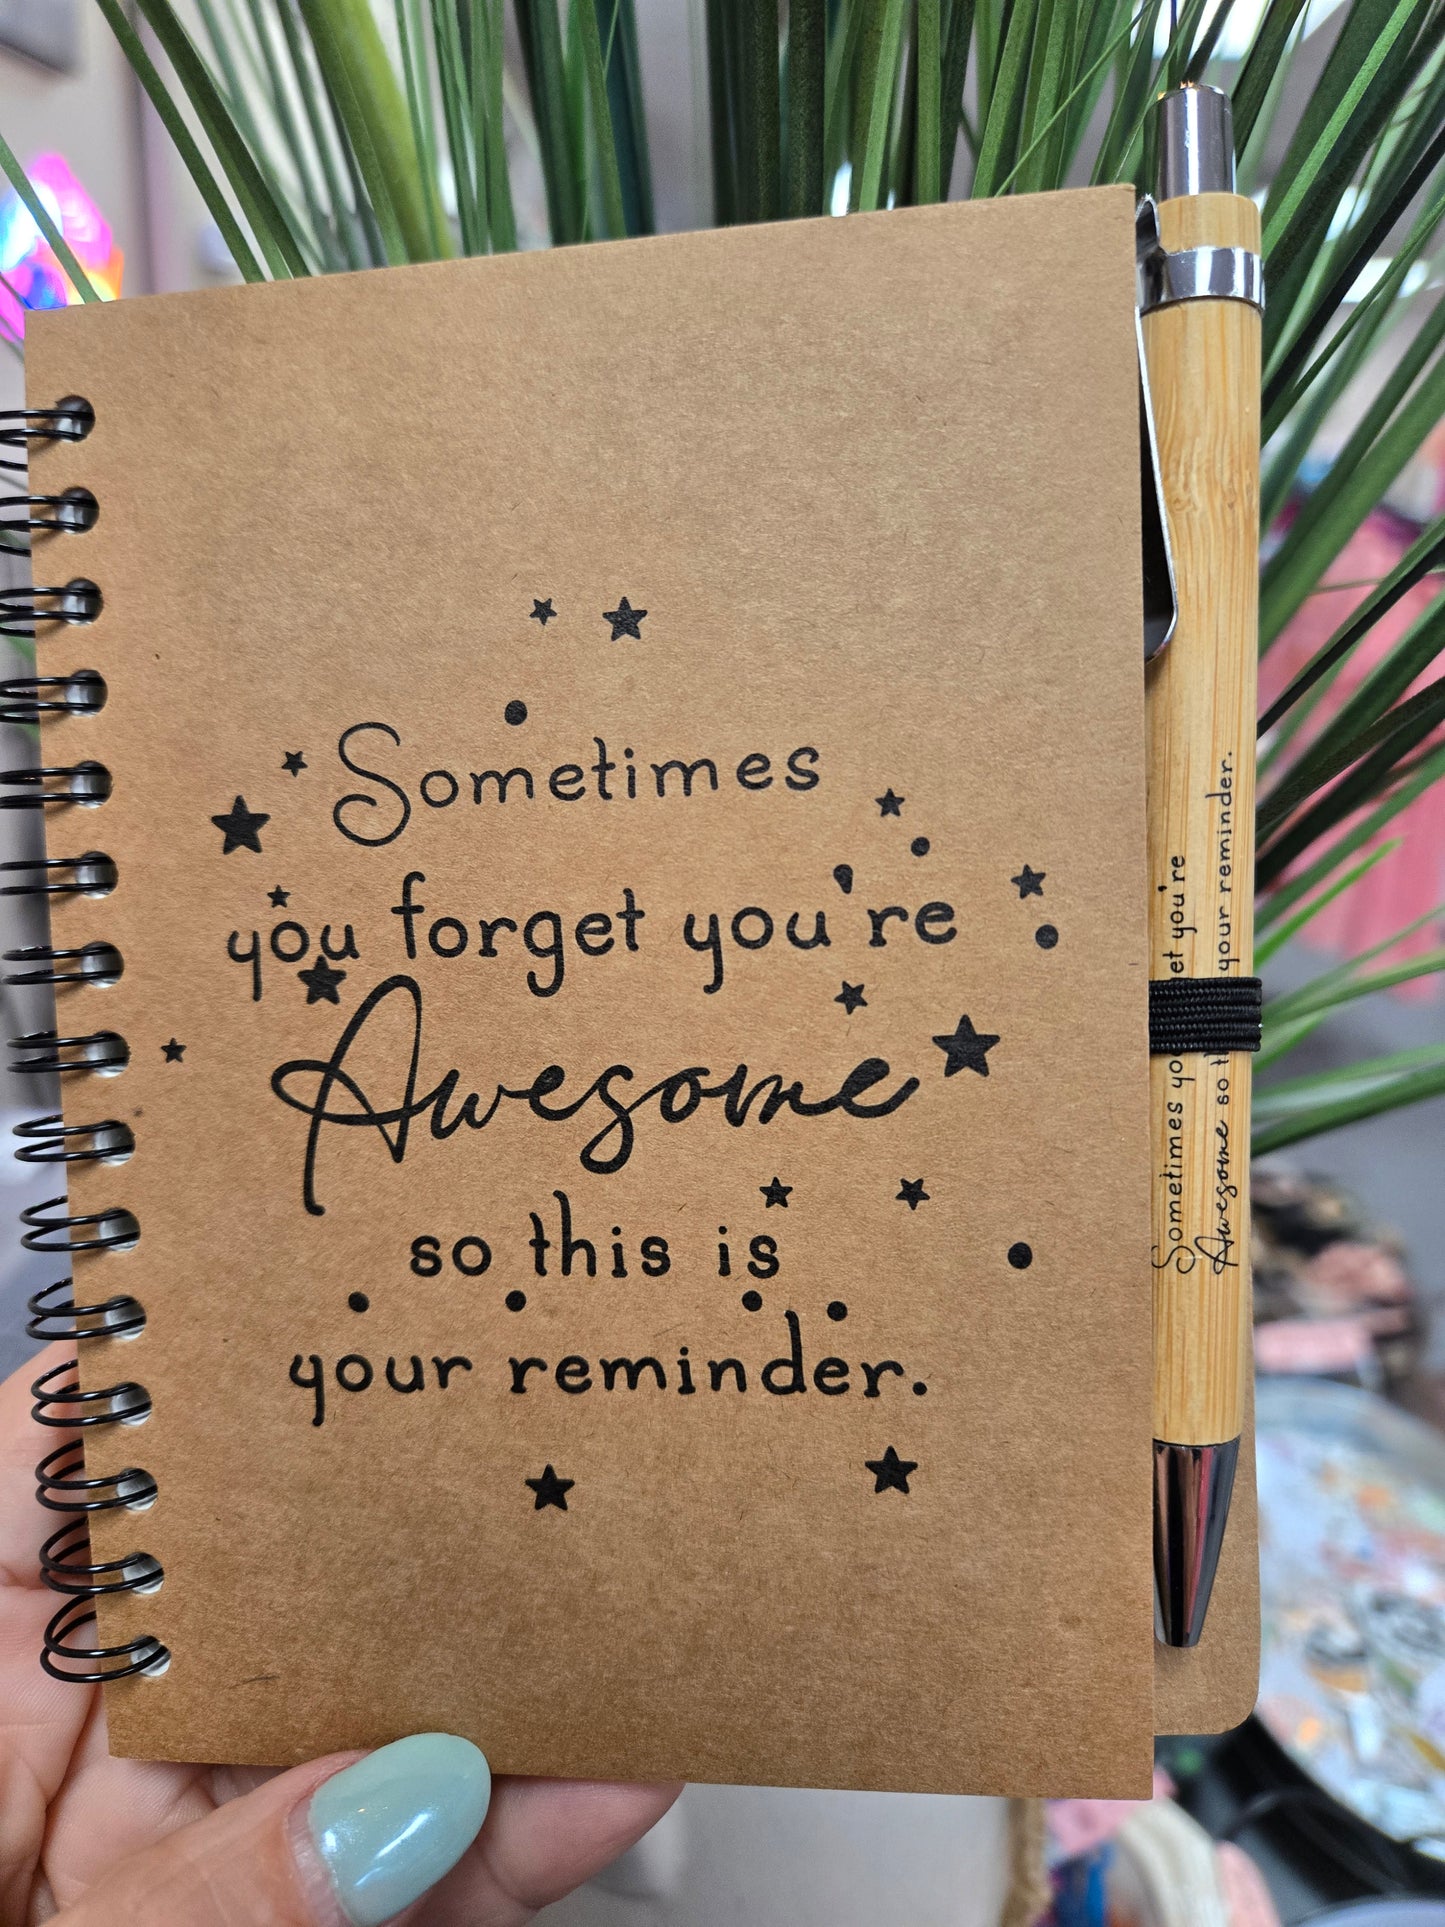 Sometimes
you forget you're
Awesome
so this is
your reminder.
Sometimes yo et you're
Awesome so t your reminder.